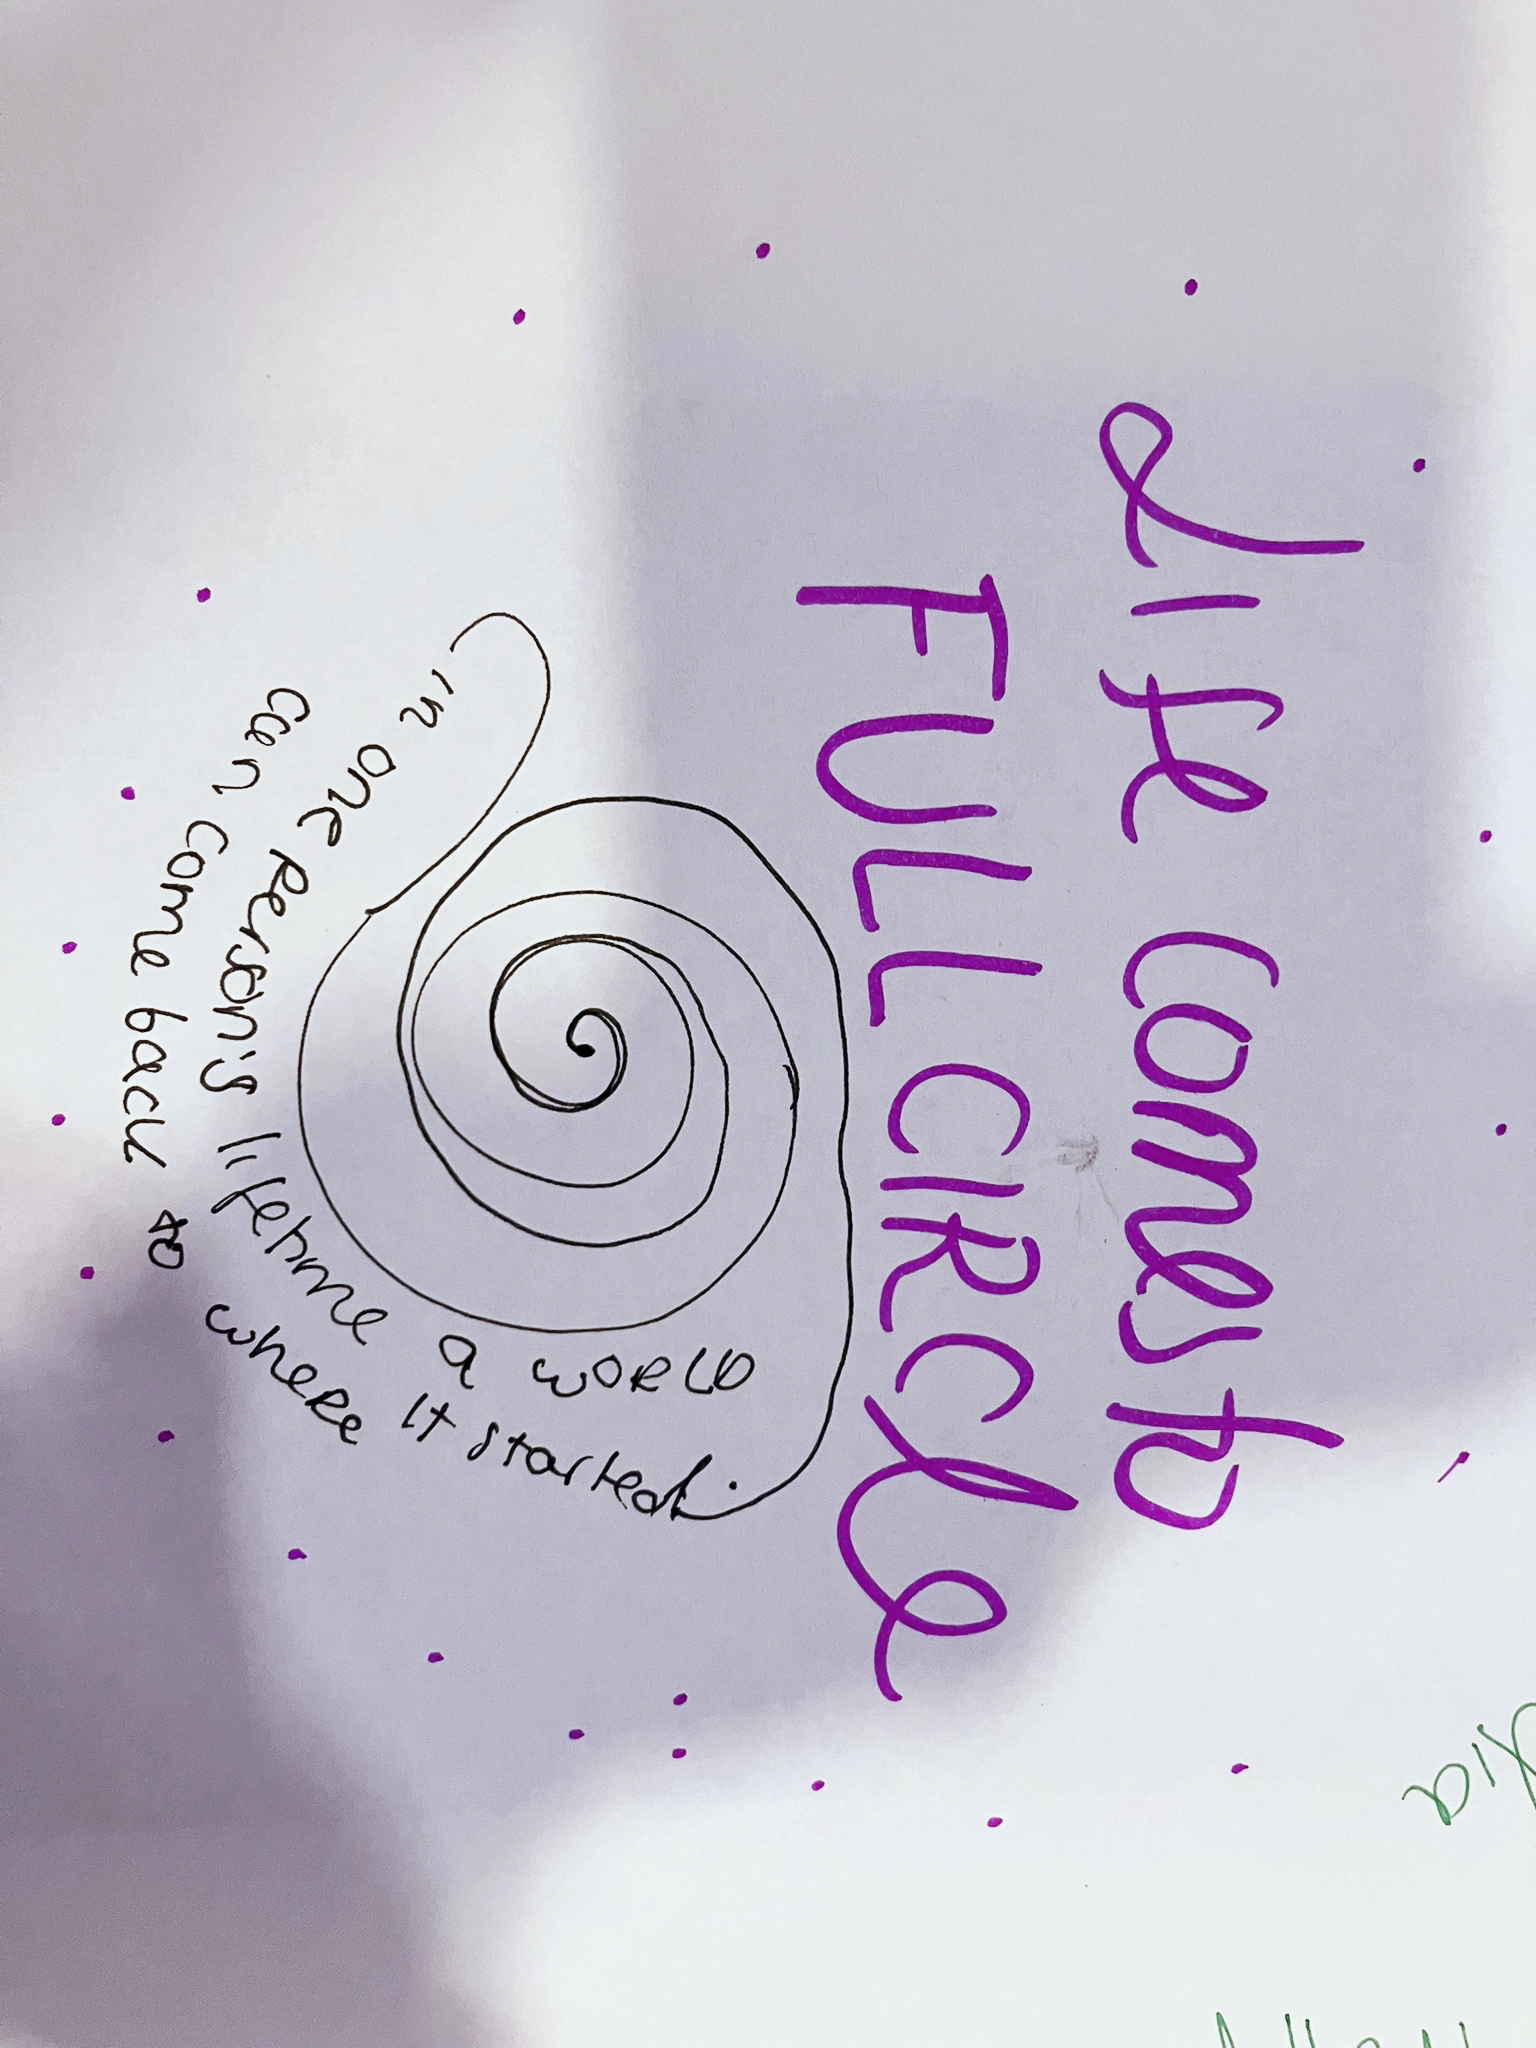 Life comes to
FULL CIRCle
in one person's lifetime a world
can come back to where it started.